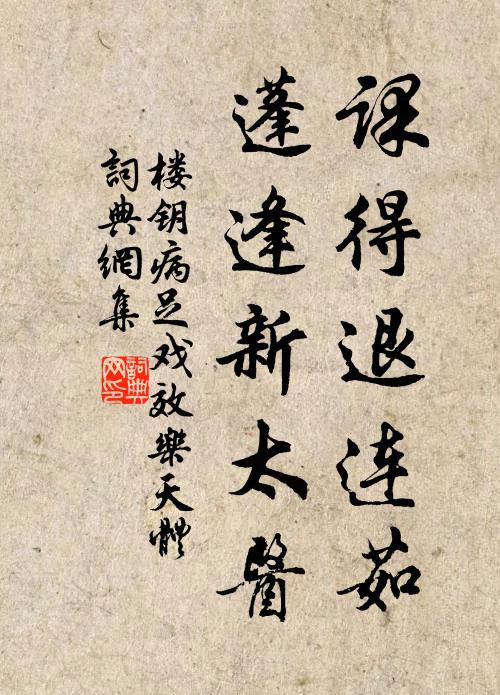 課得退連茹
蓬逢新太醫
楼钥病足戏效樂天體
詞典網集
詞典網印